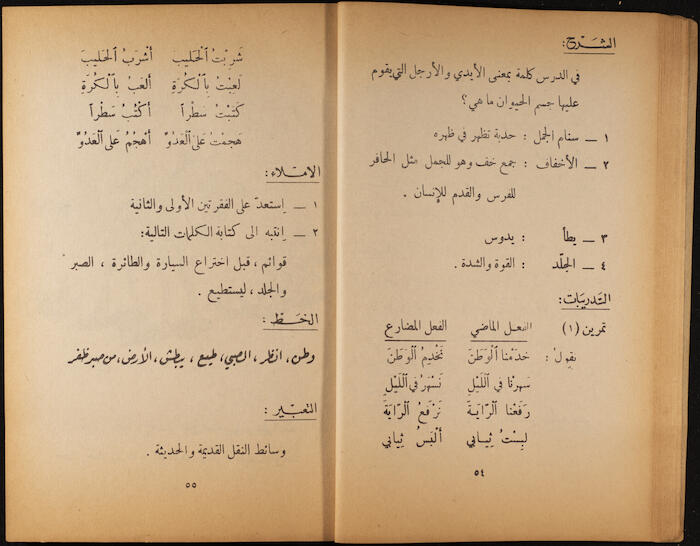 الشرح :
في الدرس كلمة بمعنى الأيدي والأرجل التي يقوم
عليها جسم الحيوان ما هي؟
١ ــ سنام الجمل : حدبة تظهر في ظهره
٢ ــ الأخفاف : جمع خف وهو للجمل مثل الحافر
للفرس والقدم للإنسان .
٣ ــ يطأ : يدوس
٤ ــ الجلد : القوة والشدة .
التدريبات :
تمرين (١) الفعل الماضي الفعل المضارع
نقول : خدَمْنا الْوطَنَ نَخْدِمُ الْوطَنَ
سهرْنا في اللَّيْلِ نَسْهَرُ في اللَّيْلِ
رفَعْنا الرَّايَةَ نَرْفَعُ الرَّايَةَ
لبِسْتُ ثِيابي أَلْبَسُ ثِيابي
٥٤
شَرِبْتُ الْحَليبَ أَشْرَبُ الْحَليبَ
لَعِبْتُ بِالْكُرَةِ أَلْعَبُ بِالْكُرَةِ
كَتَبْتُ سَطْراً أَكْتُبُ سَطْراً
هَجمْتُ عَلى الْعَدُوِّ أَهْجُمُ عَلى الْعَدُوِّ
الاملاء :
١ ــ إستعدّ على الفقرتين الأولى والثانية
٢ ــ إنتبه الى كتابة الكلمات التالية :
قوائم ، قبل اختراع السيارة والطائرة ، الصبر
والجلد ، ليستطيع .
الخط :
وطن ، انظر ، الصبي ، طيع ، يبطش ، الأرض ، من صبر ظفر
التعبير :
وسائط النقل القديمة والحديثة .
٥٥